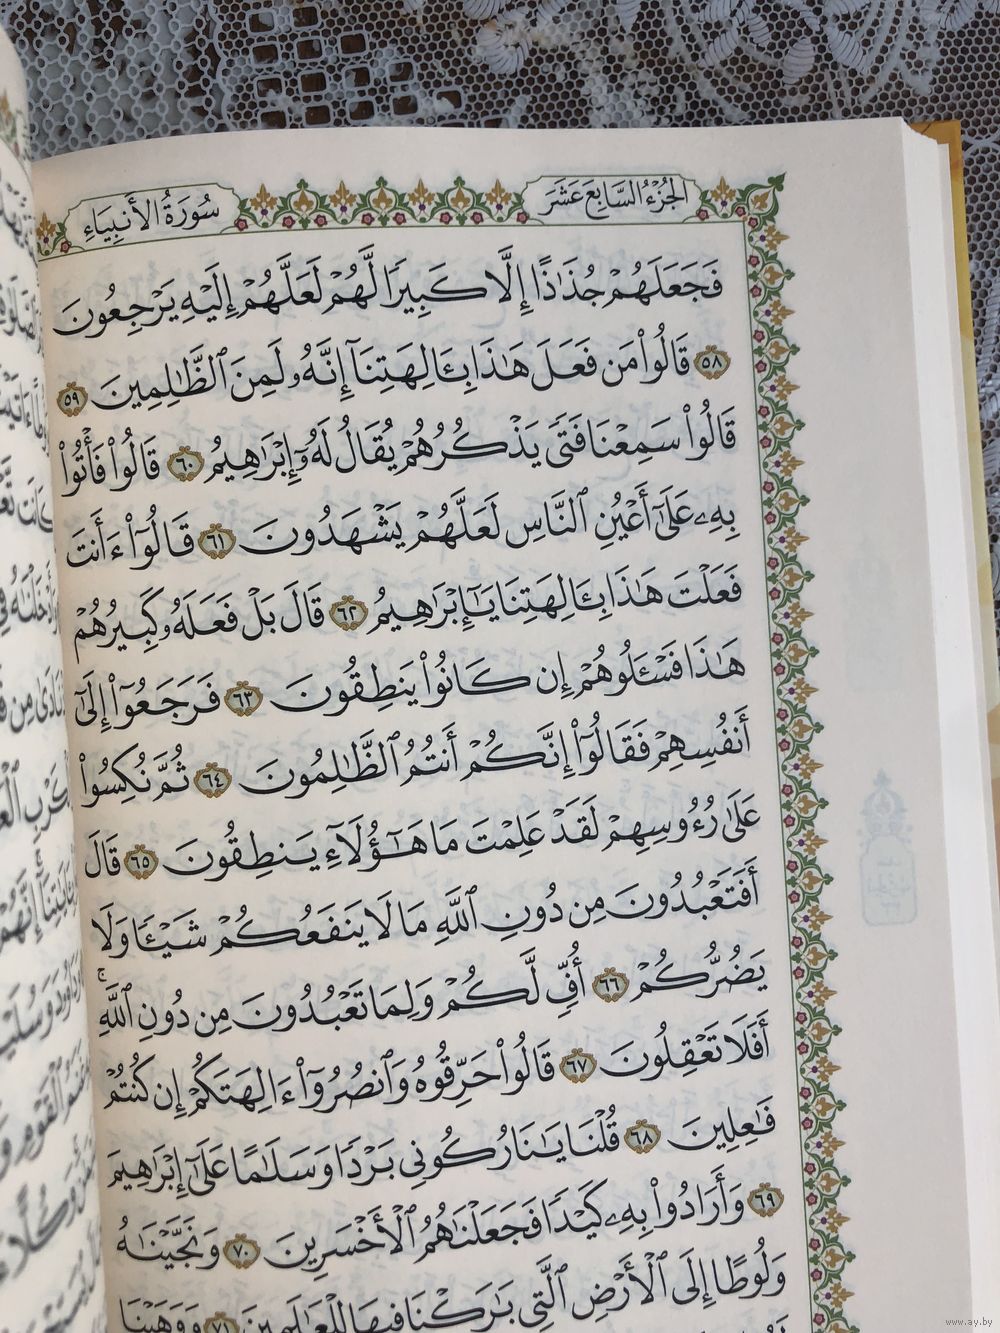 الجزء السابع عشر
سورة الأنبياء
فَجَعَلَهُمْ جُذَٰذًا إِلَّا كَبِيرًا لَّهُمْ لَعَلَّهُمْ إِلَيْهِ يَرْجِعُونَ
٥٨ قَالُوا۟ مَن فَعَلَ هَٰذَا بِـَٔالِهَتِنَآ إِنَّهُۥ لَمِنَ ٱلظَّٰلِمِينَ ٥٩
قَالُوا۟ سَمِعْنَا فَتًى يَذْكُرُهُمْ يُقَالُ لَهُۥٓ إِبْرَٰهِيمُ ٦٠ قَالُوا۟ فَأْتُوا۟
بِهِۦ عَلَىٰٓ أَعْيُنِ ٱلنَّاسِ لَعَلَّهُمْ يَشْهَدُونَ ٦١ قَالُوٓا۟ ءَأَنتَ
فَعَلْتَ هَٰذَا بِـَٔالِهَتِنَا يَٰٓإِبْرَٰهِيمُ ٦٢ قَالَ بَلْ فَعَلَهُۥ كَبِيرُهُمْ
هَٰذَا فَسْـَٔلُوهُمْ إِن كَانُوا۟ يَنطِقُونَ ٦٣ فَرَجَعُوٓا۟ إِلَىٰٓ
أَنفُسِهِمْ فَقَالُوٓا۟ إِنَّكُمْ أَنتُمُ ٱلظَّٰلِمُونَ ٦٤ ثُمَّ نُكِسُوا۟
عَلَىٰ رُءُوسِهِمْ لَقَدْ عَلِمْتَ مَا هَٰٓؤُلَآءِ يَنطِقُونَ ٦٥ قَالَ
أَفَتَعْبُدُونَ مِن دُونِ ٱللَّهِ مَا لَا يَنفَعُكُمْ شَيْـًٔا وَلَا
يَضُرُّكُمْ ٦٦ أُفٍّ لَّكُمْ وَلِمَا تَعْبُدُونَ مِن دُونِ ٱللَّهِ ۚ
أَفَلَا تَعْقِلُونَ ٦٧ قَالُوا۟ حَرِّقُوهُ وَٱنصُرُوٓا۟ ءَالِهَتَكُمْ إِن كُنتُمْ
فَٰعِلِينَ ٦٨ قُلْنَا يَٰنَارُ كُونِى بَرْدًا وَسَلَٰمًا عَلَىٰٓ إِبْرَٰهِيمَ
٦٩ وَأَرَادُوا۟ بِهِۦ كَيْدًا فَجَعَلْنَٰهُمُ ٱلْأَخْسَرِينَ ٧٠ وَنَجَّيْنَٰهُ
وَلُوطًا إِلَى ٱلْأَرْضِ ٱلَّتِى بَٰرَكْنَا فِيهَا لِلْعَٰلَمِينَ ٧١ وَوَهَبْنَا
www.ay.by